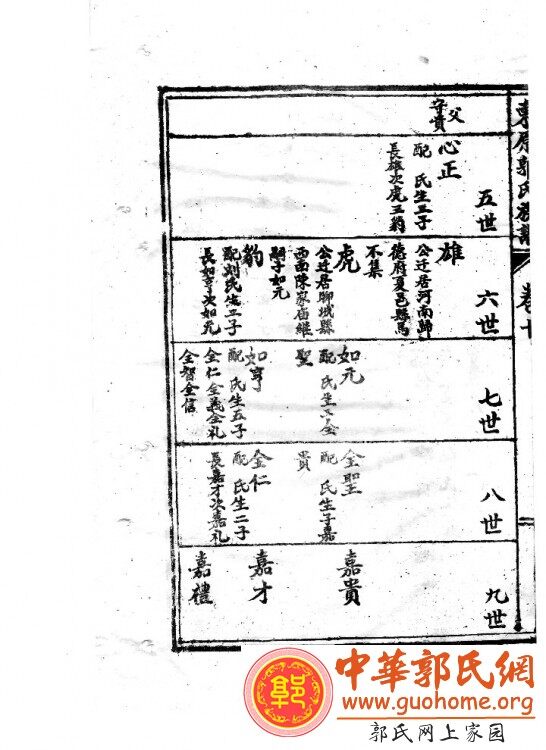 東原郭氏族譜
卷十
五世
父
守貴
心正
配 氏生三子
長雄次虎三豹
六世
雄
公迁居河南歸
德府夏邑縣馬
不集
虎
公迁居聊城縣
西南陳家庙継
嗣子如元
豹
配刘氏生二子
長如亨次如元
七世
如元
配 氏生子全
聖
如亨
配 氏生五子
全仁全義全礼
全智全信
八世
全聖
配 氏生子嘉
貴
全仁
配 氏生二子
長嘉才次嘉礼
九世
嘉貴
嘉才
嘉禮
郭
中華郭氏網
www.guohome.org
郭氏网上家园